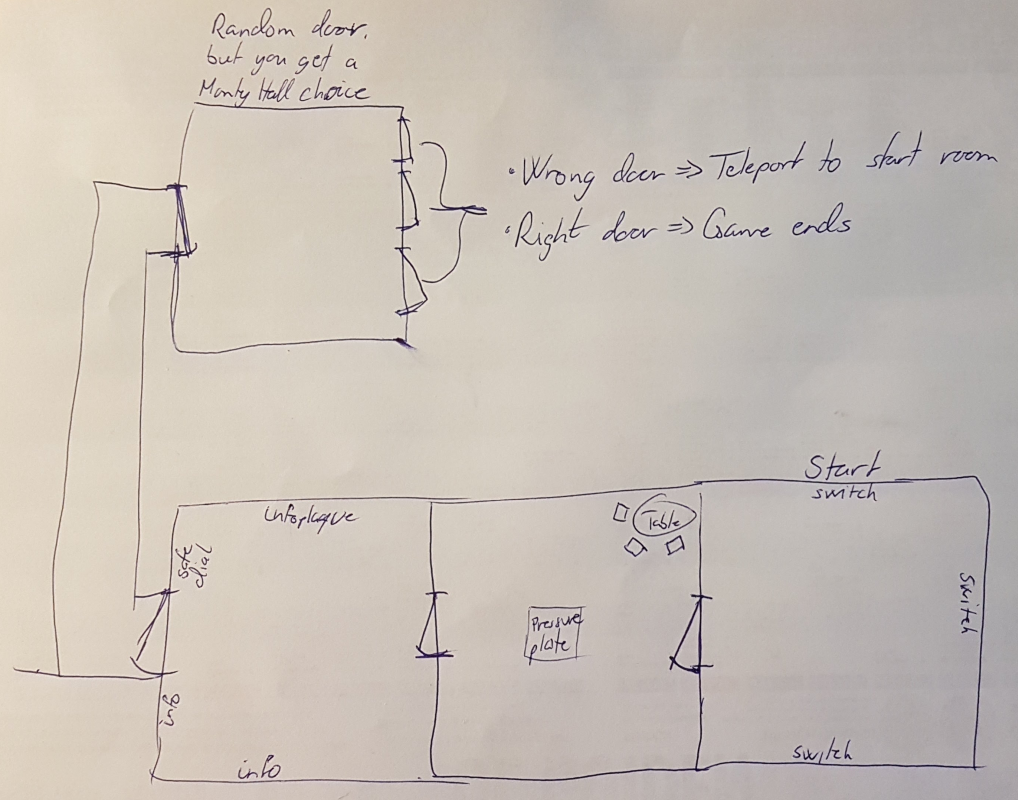 Random door.
but you get a
Monty Hall choice
• Wrong door => Teleport to start room
• Right door => Game ends
Start
switch
infoplaque
Table
safe
dial
switch
Pressure
plate
info
info
switch